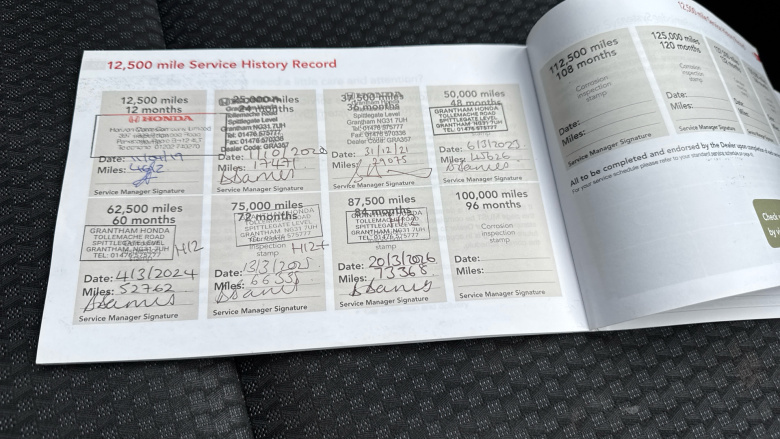 12,500 mile Service History Record
12,500 miles
12 months
HONDA
Date:
Miles:
Service Manager Signature
25,000 miles
24 months
Tollemache Road
Spittlegate Level
Grantham NG31 7UH
Tel: 01476 575777
Dealer Code: GRA357
Date: 1/10/2020
Miles: 17471
Service Manager Signature
37,500 miles
36 months
Spittlegate Level
Grantham NG31 7UH
Tel: 01476 575777
Fax: 01476 570336
Dealer Code: GRA357
Date: 31/12/21
Miles: 29075
Service Manager Signature
50,000 miles
48 months
GRANTHAM HONDA
TOLLEMACHE ROAD
SPITTLEGATE LEVEL
GRANTHAM NG31 7UH
TEL: 01476 575777
Date: 6/3/2023
Miles:
Service Manager Signature
62,500 miles
60 months
GRANTHAM HONDA
TOLLEMACHE ROAD
SPITTLEGATE LEVEL
GRANTHAM, NG31 7UH
TEL: 01476 575777
H12
Date: 4/3/2024
Miles: 52762
Service Manager Signature
75,000 miles
72 months
GRANTHAM HONDA
TOLLEMACHE ROAD
SPITTLEGATE LEVEL
GRANTHAM NG31 7UH
TEL: 01476 575777
inspection
stamp
H12+
Date: 13/3/2025
Miles:
Service Manager Signature
87,500 miles
84 months
GRANTHAM HONDA
TOLLEMACHE ROAD
SPITTLEGATE LEVEL
GRANTHAM NG31 7UH
TEL: 01476 575777
stamp
Date: 20/3/2026
Miles: 73368
Service Manager Signature
100,000 miles
96 months
Corrosion
inspection
stamp
Date:
Miles:
Service Manager Signature
112,500 miles
108 months
Corrosion
inspection
stamp
Date:
Miles:
Service Manager Signature
125,000 miles
120 months
Corrosion
inspection
stamp
Date:
Miles:
Service Manager Signature
All to be completed and endorsed by the Dealer upon completion
For your service schedule please refer to your standard service schedule
Check
by vi